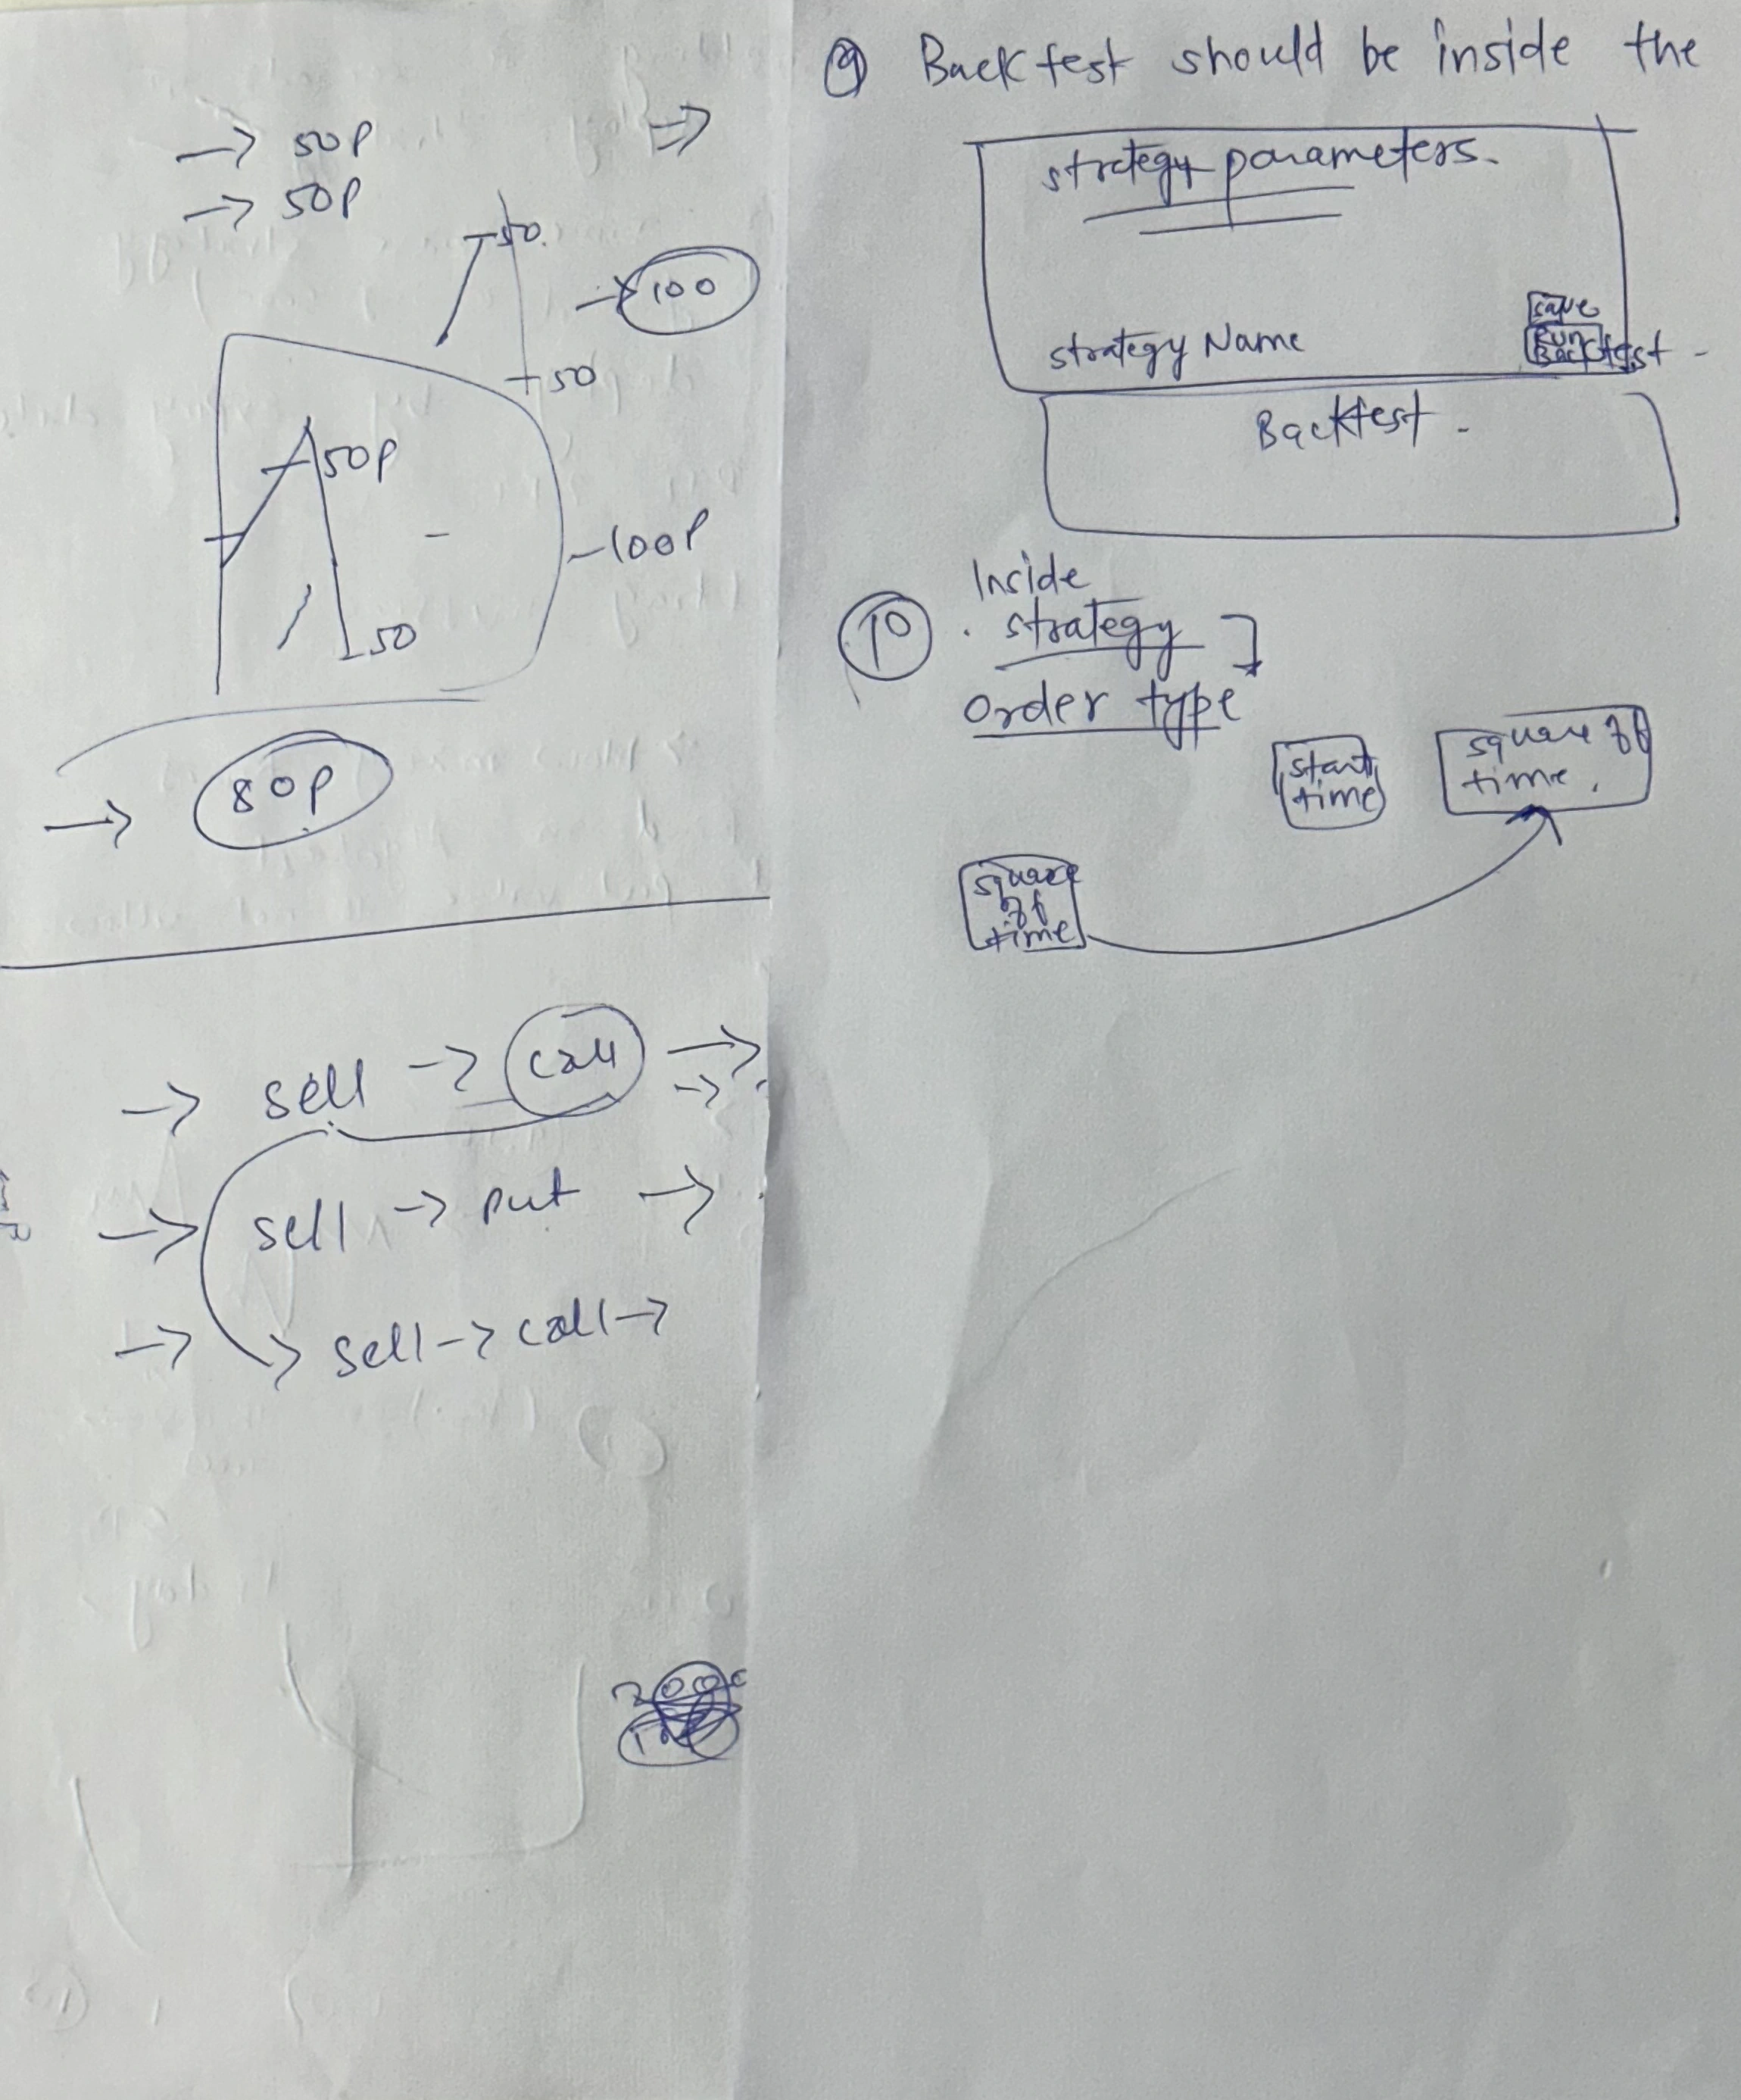 → 50P
→ 50P
50
→ 100
50
50P
-100P
50
→ 80P
→ sell → call →
→ sell → put →
→ sell → call →
⑨ Backtest should be inside the
strategy parameters.
save
strategy Name
Run
Backtest -
Backtest -
⑩ Inside
. strategy
order type
start
time
square off
time.
square
off
time